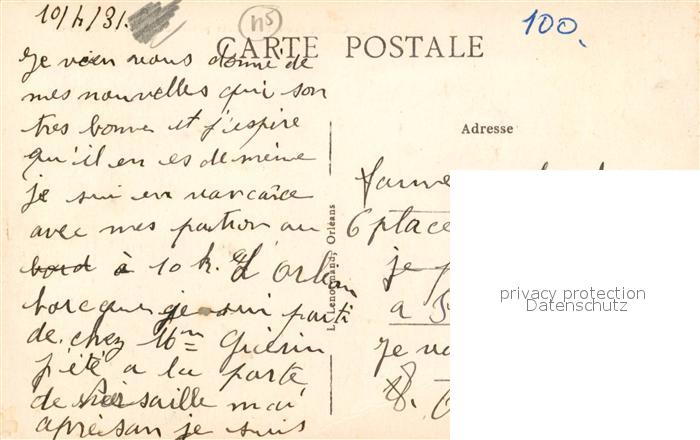 10/4/31.
ns
100.
CARTE POSTALE
je vien vous donné de
mes nouvelles qui son
tres bonne et j'espire
qu'il en es de même
je sui en vancance
avec mes patron au
bord à 10 k. d'Orlean
torcque je sui parti
de chez Mme Guérin
j'été a la porte
de versaille mai
apresan je suis
Adresse
L. Lenormand, Orléans
6 place
je
a
je
privacy protection
Datenschutz